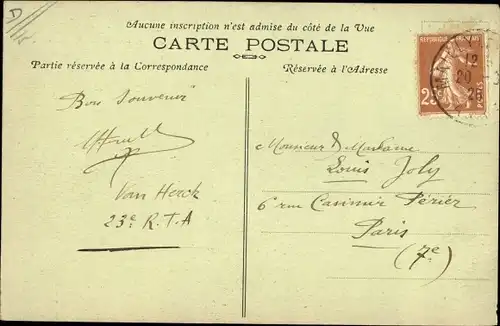 D
Aucune inscription n'est admise du côté de la Vue
CARTE POSTALE
Partie réservée à la Correspondance
Réservée à l'Adresse
REPUBLIQUE
25
POSTES
12
20
Bon Souvenir
Van Herck
23e R.T.A
Monsieur & Madame
Louis Joly
6 rue Casimir Périer
Paris
(7e)